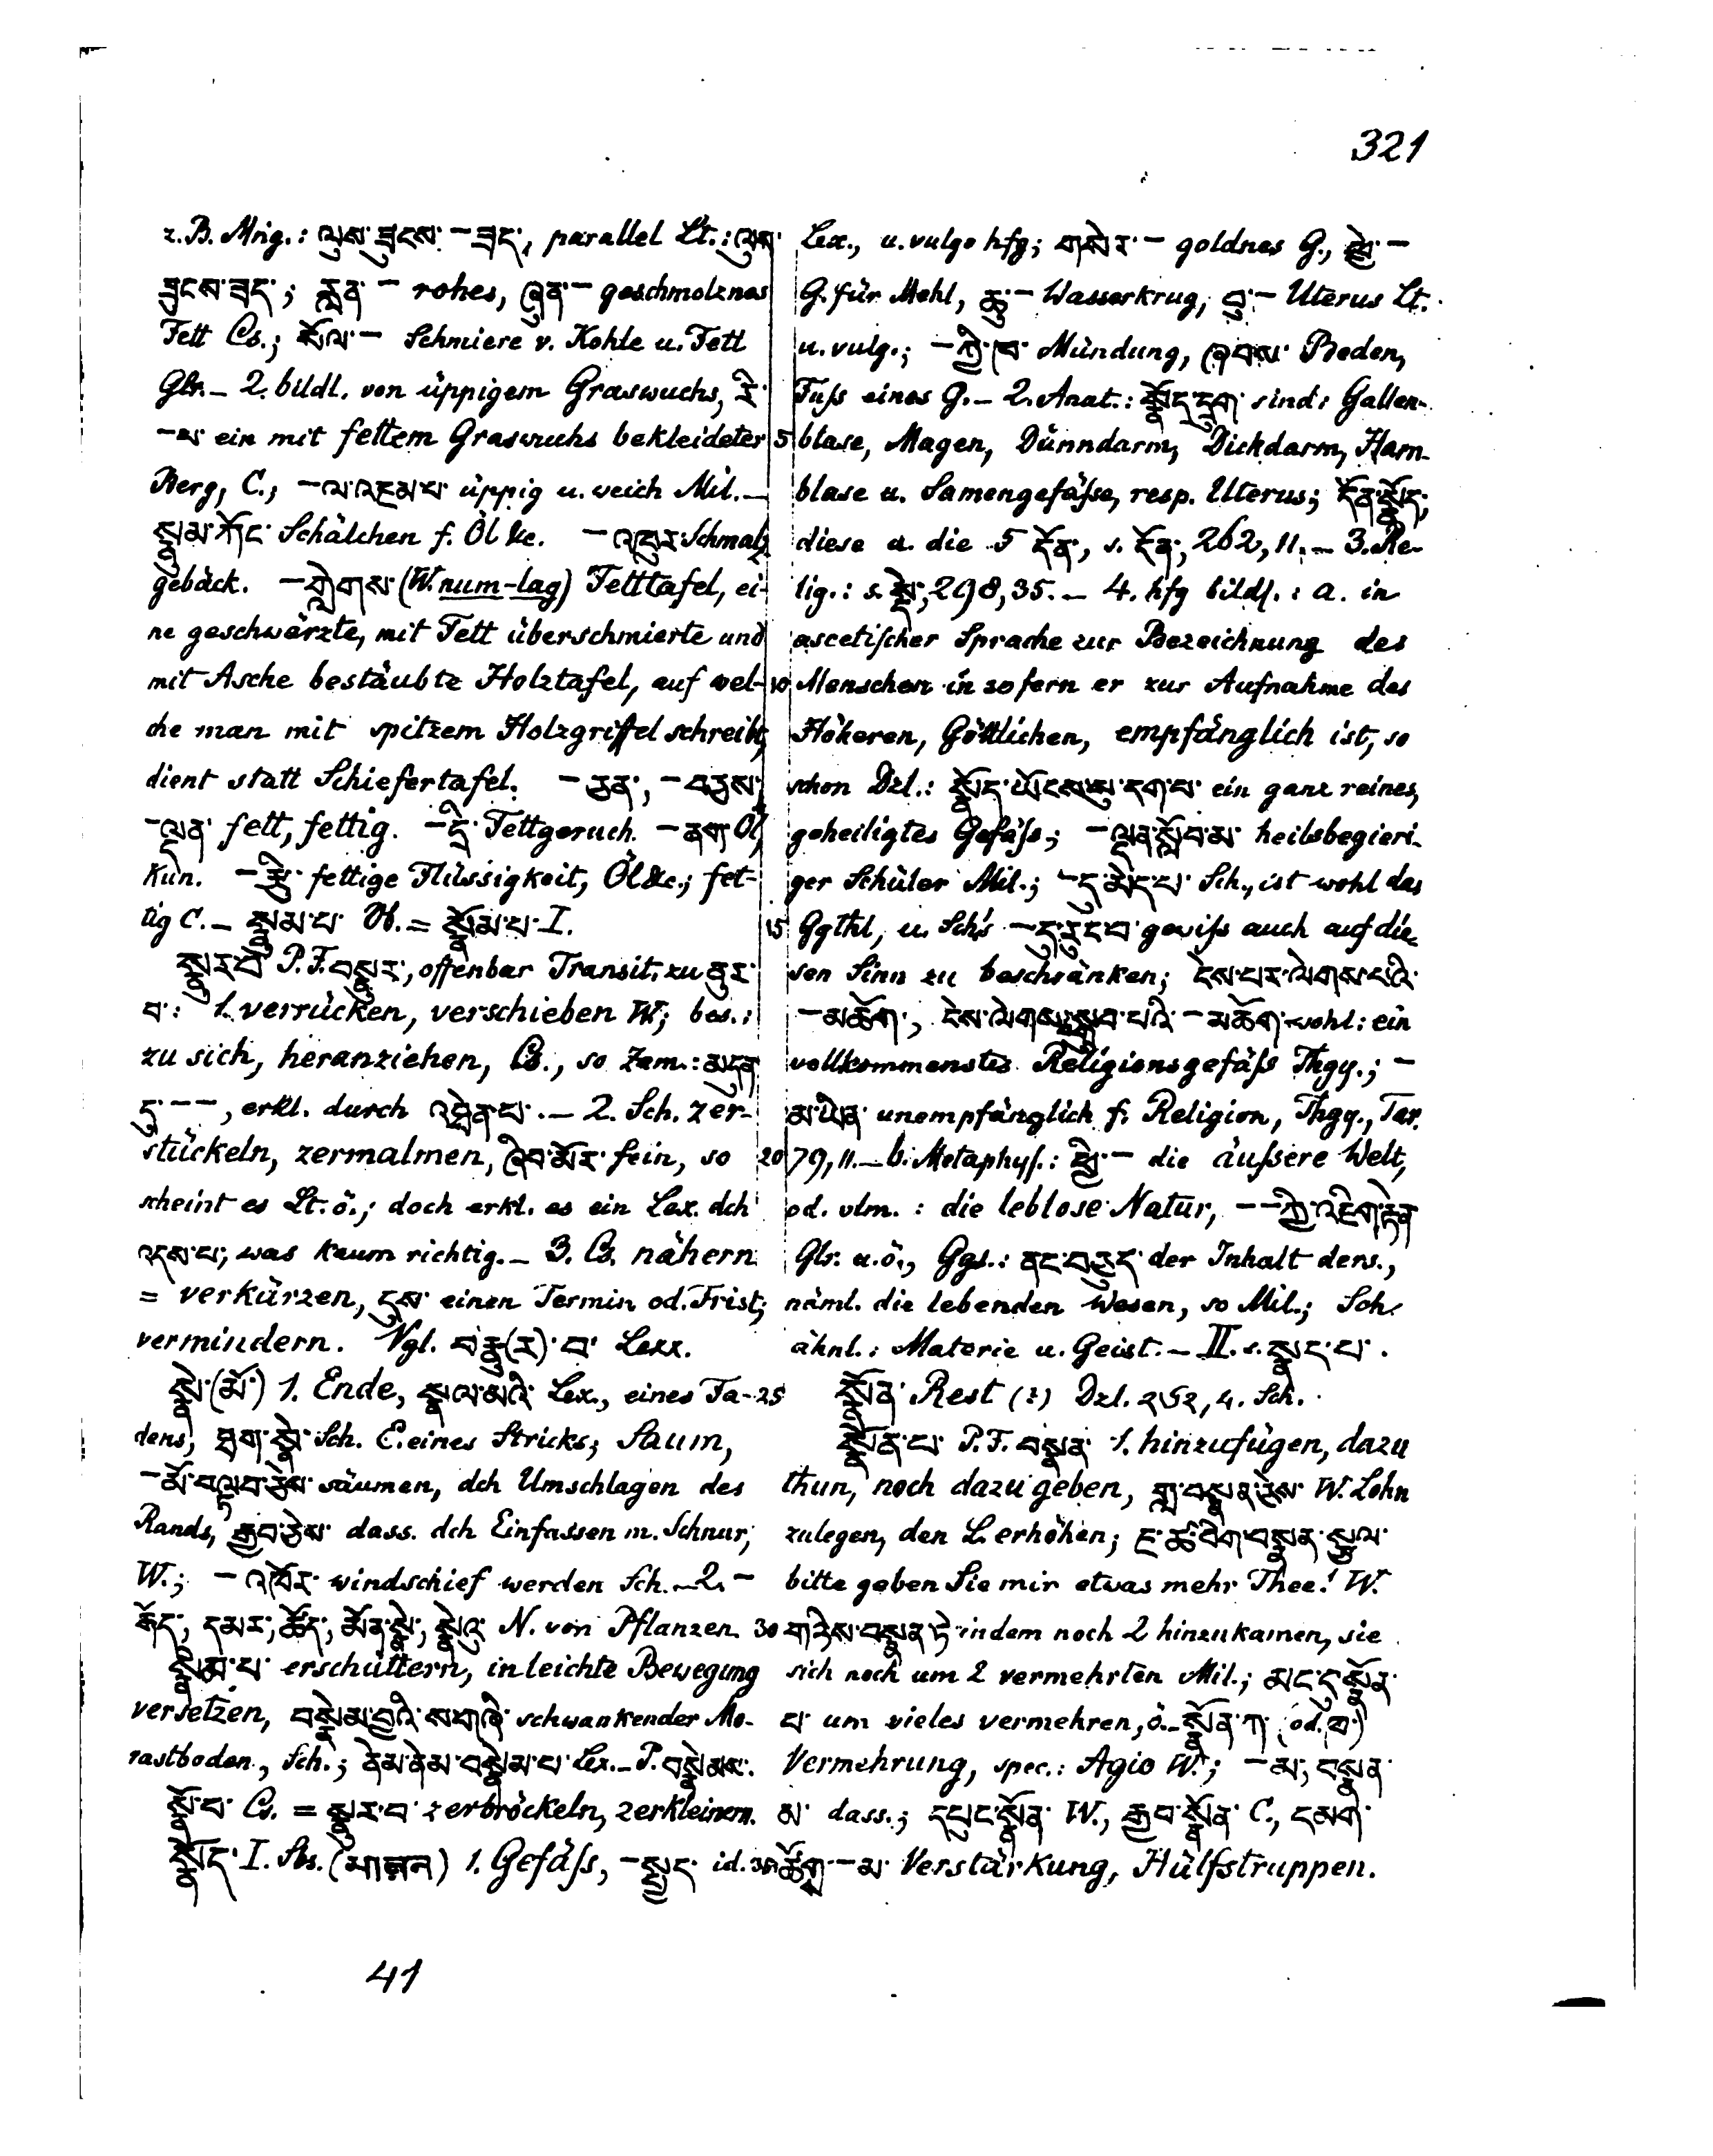 321
z.B. Mṅg.: ལུས་ཟུངས་ – ཟད་, parallel Lt.: ལུས་
ཟུངས་ཟད་; རློན་ – rohes, ཞུན་ – geschmolznes
Fett Cs.; སོལ་ – Schmiere v. Kohle u. Fett
Glr. – 2. bildl. von üppigem Graswuchs, རི་
– པ་ ein mit fettem Graswuchs bekleideter
Berg, C.; – ལ་འཇམ་པ་ üppig u. weich Mil. –
སྣུམ་ཀོང་ Schälchen f. Öl &c. – འཁུར་ Schmalz
gebäck. – གླེགས་ (W. num-lag) Fetttafel, ei-
ne geschwärzte, mit Fett überschmierte und
mit Asche bestäubte Holztafel, auf wel-
che man mit spitzem Holzgriffel schreibt,
dient statt Schiefertafel. – ཅན་, – བཅས་,
– ལྡན་ fett, fettig. – དྲི་ Fettgeruch. – ནག་ Öl,
Kun. – རྩི་ fettige Flüssigkeit, Öl &c.; fet-
tig C. – སྣུམ་པ་ Vb. = སྣོམ་པ་ I.
སྣུར་བ་ P.F. བསྣུར་, offenbar Transit. zu ནུར་
བ་: 1. verrücken, verschieben W; bes.:
zu sich, heranziehen, Cs., so Zam.: མདུན་
དུ་ – –, erkl. durch འཐེན་པ་. – 2. Sch. zer-
stückeln, zermalmen, ཞིབ་མོར་ fein, so
scheint es Lt. ö.; doch erkl. es ein Lex. dch
འདས་པ་, was kaum richtig. – 3. Cs. nähern
= verkürzen, དུས་ einen Termin od. Frist;
vermindern. Vgl. བརྣུ(ར)་བ་ Lexx.
སྣེ་(མོ་) 1. Ende, སྣལ་མའི་ Lex., eines Fa-
dens, ཐག་སྣེ་ Sch. E. eines Stricks; Saum,
– མོ་བལྟབ་ཅེས་ säumen, dch Umschlagen des
Rands, རྒྱབ་ཅེས་ dass. dch Einfassen m. Schnur,
W.; – འཁོར་ windschief werden Sch. – 2. –
རྒོད་, དམར་, ཚོད་, མོན་སྣེ་, སྣེའུ་ N. von Pflanzen.
སྣེམ་པ་ erschüttern, in leichte Bewegung
versetzen, བསྣེམ་བྱའི་སགཞི་ schwankender Mo-
rastboden, Sch.; ནེམ་ནེམ་བསྣེམ་པ་ Lex. – P. བསྣེམས་.
སྣོ་བ་ Cs. = སྣུར་བ་ zerbröckeln, zerkleinern.
སྣོད་ I. Sbs. (भाजन) 1. Gefäſs, – སྤྱད་ id.
Lex., u. vulgo hfg; གསེར་ – goldnes G., ཕྱེ་ –
G. für Mehl, ཆུ་ – Wasserkrug, བུ་ – Uterus Lt.
u. vulg.; – ཀྱི་ཁ་ Mündung, ཞབས་ Boden,
Fuſs eines G. – 2. Anat.: སྣོད་དྲུག་ sind: Gallen-
5 blase, Magen, Dünndarm, Dickdarm, Harn-
blase u. Samengefäſse, resp. Uterus; དོན་སྣོད་,
diese u. die 5 དོན་, s. དོན་, 262, 11. – 3. Re-
lig.: s. སྡེ་, 298, 35. – 4. hfg bildl.: a. in
ascetiſcher Sprache zur Bezeichnung des
10 Menschen in sofern er zur Aufnahme des
Höheren, Göttlichen, empfänglich ist, so
schon Dzl.: སྣོད་ཡོངས་སུ་དག་པ་ ein ganz reines,
geheiligtes Gefäſs; – ལྡན་སློབ་མ་ heilsbegieri-
ger Schüler Mil.; – དུ་མེད་པ་ Sch., ist wohl das
15 Ggthl, u. Sch's – དུ་རུང་བ་ gewiſs auch auf die-
sen Sinn zu beschränken; ངེས་པར་ལེགས་པའི་
– མཆོག་, ངེས་ལེགས་སྒྲུབ་པའི་ – མཆོག་ wohl: ein
vollkommenstes Religionsgefäſs Thgy.; –
མ་ཡིན་ unempfänglich f. Religion, Thgy., Tar.
20 79, 11. – b. Metaphyſ.: ཕྱི་ – die äuſsere Welt,
od. vlm.: die leblose Natur, – – ཀྱི་འཇིག་རྟེན་
Glr. u. ö., Ggs.: ནང་བཅུད་ der Inhalt ders.,
näml. die lebenden Wesen, so Mil.; Sch.
ähnl.: Materie u. Geist. – II. s. སྣད་པ་.
25 སྣོན་ Rest (?) Dzl. ༢༦༢, 4. Sch.
སྣོན་པ་ P.F. བསྣན་ 1. hinzufügen, dazu
thun, noch dazu geben, གླ་བསྣན་ཅེས་ W. Lohn
zulegen, den L. erhöhen; ཇ་ཚ་བིག་བསྣན་སྩལ་
bitte geben Sie mir etwas mehr Thee! W.
30 གཉིས་བསྣན་ཏེ་ indem noch 2 hinzukamen, sie
sich noch um 2 vermehrten Mil.; མང་དུ་སྣོན་
པ་ um vieles vermehren, ö. – སྣོན་ཀ་ (od. ཁ་)
Vermehrung, spec.: Agio W.; – མ་, བསྣན་
མ་ dass.; དཔུང་སྣོན་ W., རྒྱབ་སྣོན་ C., དམག་
35 ཚོགས་ – མ་ Verstärkung, Hülfstruppen.
41